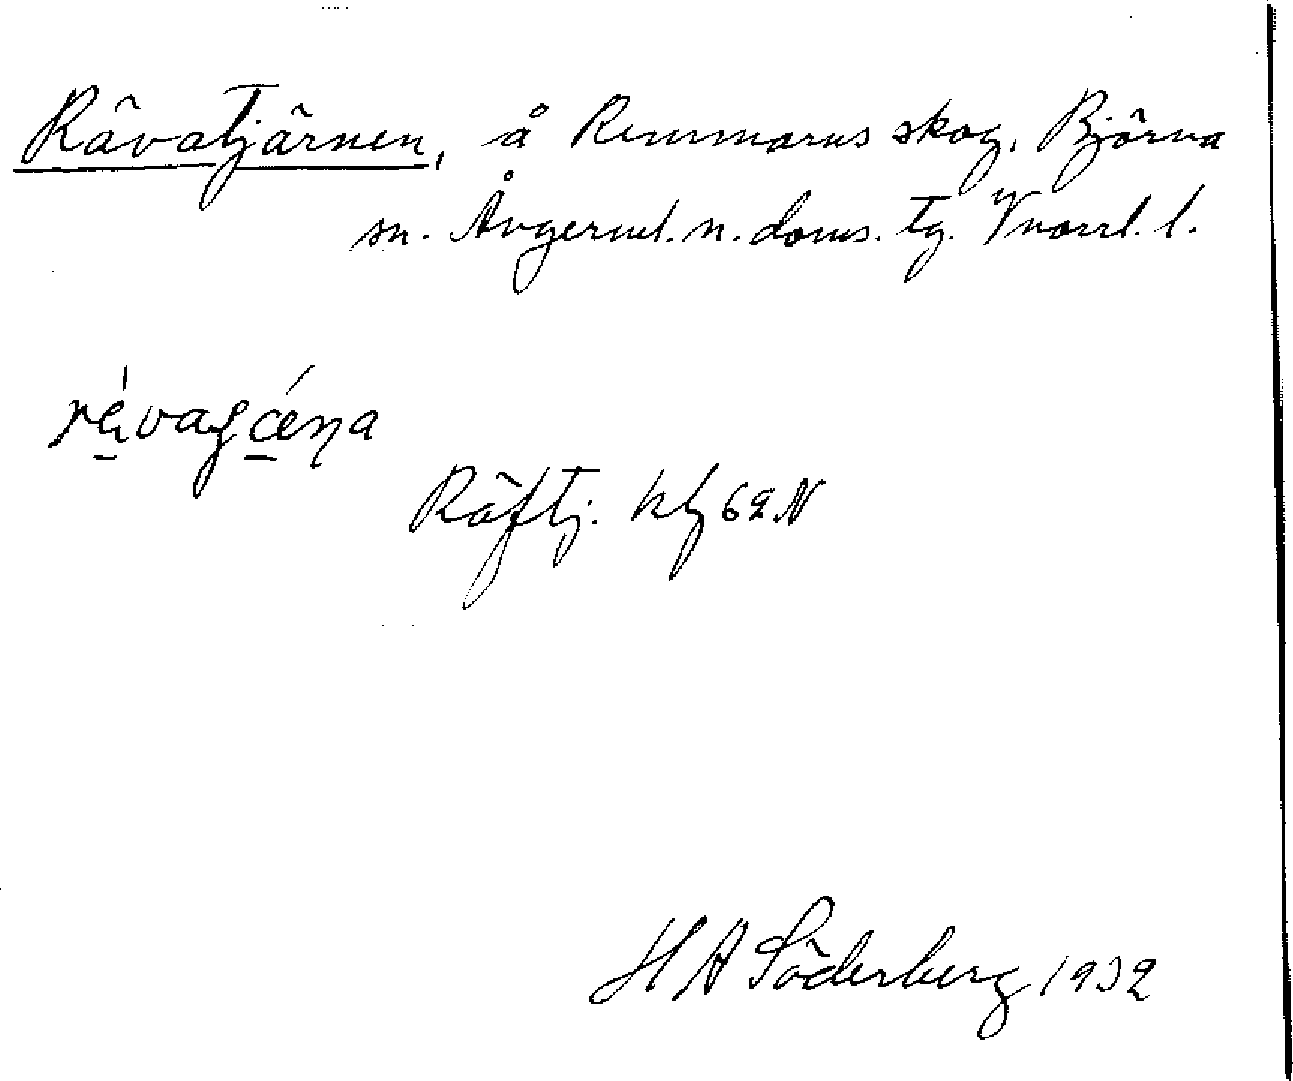 Rävatjärnen, å Remmarns skog, Björna
sn. Ångerml. n. doms. tg. Vnorrl. l.
Räftj. kbl 62 N
H A Söderberg 1932